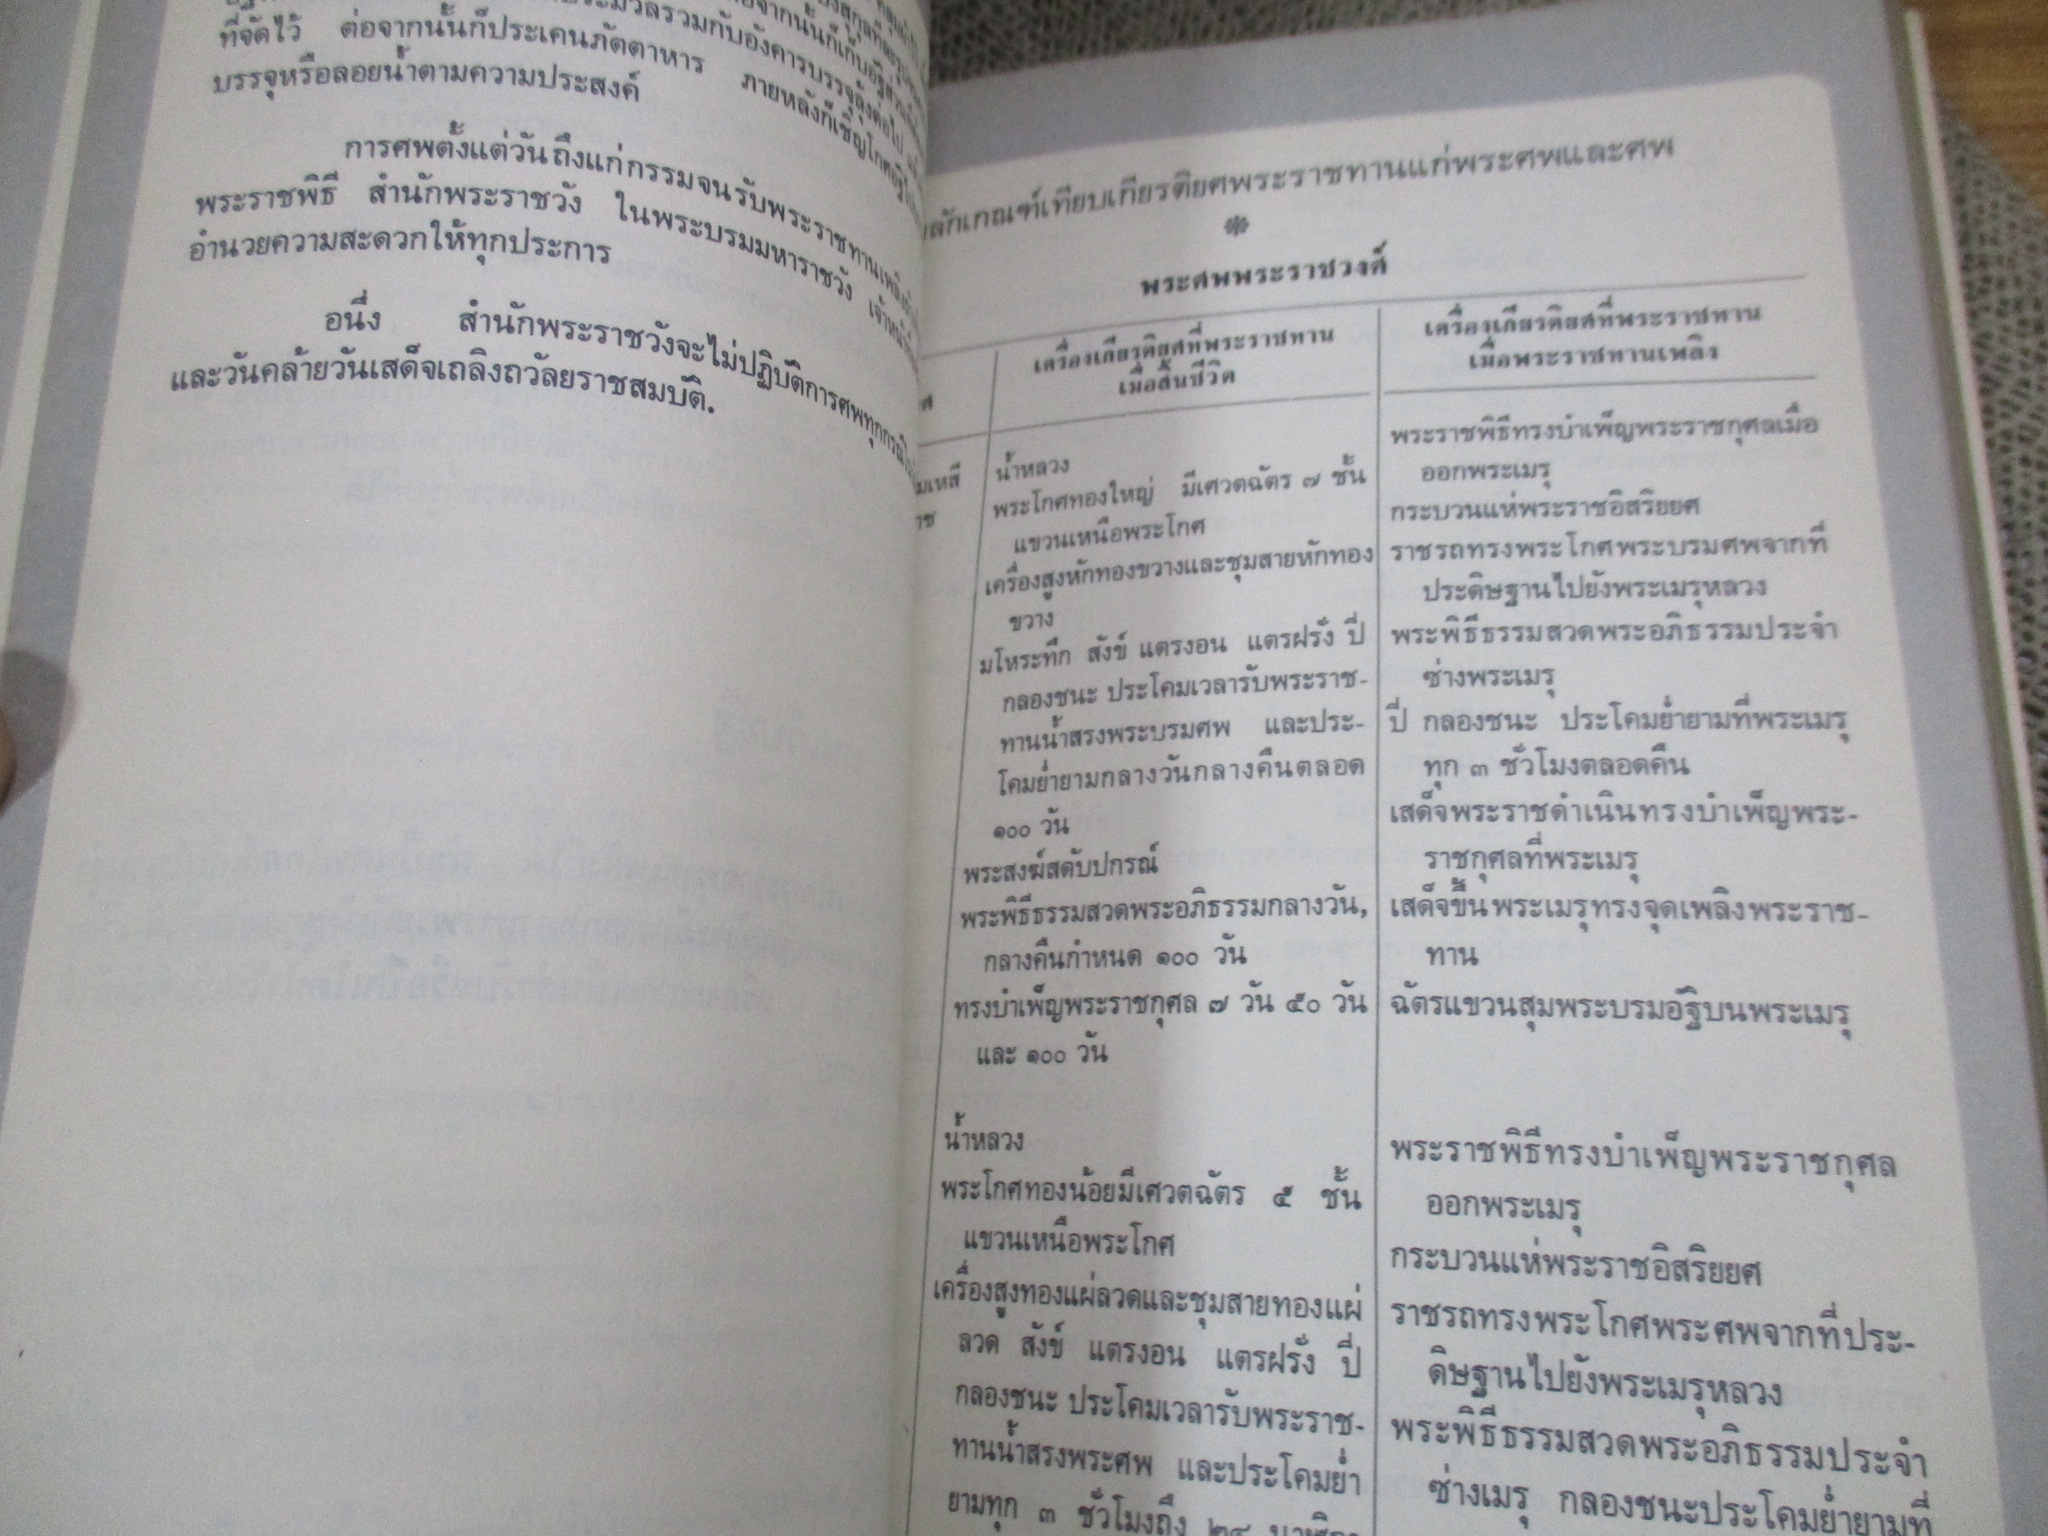 ที่จัดไว้ ต่อจากนั้นก็ประเคนภัตตาหาร ภายหลังก็เชิญโกศอัฐิ
บรรจุหรือลอยน้ำตามความประสงค์
การศพตั้งแต่วันถึงแก่กรรมจนรับพระราชทานเพลิง
พระราชพิธี สำนักพระราชวัง ในพระบรมมหาราชวัง
อำนวยความสะดวกให้ทุกประการ
อนึ่ง สำนักพระราชวังจะไม่ปฏิบัติการศพทุกกรณี
และวันคล้ายวันเสด็จเถลิงถวัลยราชสมบัติ.
ลักเกณฑ์เทียบเกียรติยศพระราชทานแก่พระศพและศพ
พระศพพระราชวงศ์
เครื่องเกียรติยศที่พระราชทาน
เมื่อสิ้นชีวิต
น้ำหลวง
พระโกศทองใหญ่ มีเศวตฉัตร ๗ ชั้น
แขวนเหนือพระโกศ
เครื่องสูงหักทองขวางและชุมสายหักทอง
ขวาง
มโหระทึก สังข์ แตรงอน แตรฝรั่ง ปี่
กลองชนะ ประโคมเวลารับพระราช-
ทานน้ำสรงพระบรมศพ และประ-
โคมย่ำยามกลางวันกลางคืนตลอด
๑๐๐ วัน
พระสงฆ์สดับปกรณ์
พระพิธีธรรมสวดพระอภิธรรมกลางวัน,
กลางคืนกำหนด ๑๐๐ วัน
ทรงบำเพ็ญพระราชกุศล ๗ วัน ๕๐ วัน
และ ๑๐๐ วัน
น้ำหลวง
พระโกศทองน้อยมีเศวตฉัตร ๕ ชั้น
แขวนเหนือพระโกศ
เครื่องสูงทองแผ่ลวดและชุมสายทองแผ่
ลวด สังข์ แตรงอน แตรฝรั่ง ปี่
กลองชนะ ประโคมเวลารับพระราช-
ทานน้ำสรงพระศพ และประโคมย่ำ
ยามทุก ๓ ชั่วโมงถึง ๒๔ นาฬิกา
เครื่องเกียรติยศที่พระราชทาน
เมื่อพระราชทานเพลิง
พระราชพิธีทรงบำเพ็ญพระราชกุศลเมื่อ
ออกพระเมรุ
กระบวนแห่พระราชอิสริยยศ
ราชรถทรงพระโกศพระบรมศพจากที่
ประดิษฐานไปยังพระเมรุหลวง
พระพิธีธรรมสวดพระอภิธรรมประจำ
ซ่างพระเมรุ
ปี่ กลองชนะ ประโคมย่ำยามที่พระเมรุ
ทุก ๓ ชั่วโมงตลอดคืน
เสด็จพระราชดำเนินทรงบำเพ็ญพระ-
ราชกุศลที่พระเมรุ
เสด็จขึ้นพระเมรุทรงจุดเพลิงพระราช-
ทาน
ฉัตรแขวนสุมพระบรมอัฐิบนพระเมรุ
พระราชพิธีทรงบำเพ็ญพระราชกุศล
ออกพระเมรุ
กระบวนแห่พระราชอิสริยยศ
ราชรถทรงพระโกศพระศพจากที่ประ-
ดิษฐานไปยังพระเมรุหลวง
พระพิธีธรรมสวดพระอภิธรรมประจำ
ซ่างเมรุ กลองชนะประโคมย่ำยามที่